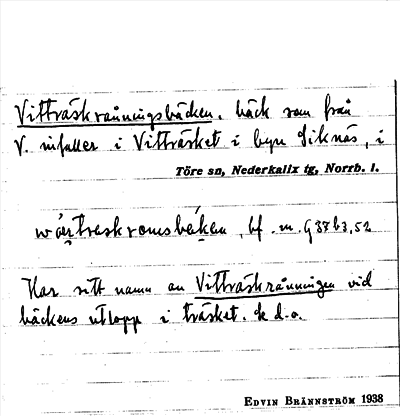 Vitträskrånningsbäcken, bäck som från
V. infaller i Vitträsket i byn Siknäs, i
Töre sn, Nederkalix tg, Norrb. l.
bf. m. G 37 b 3, 52
Har sitt namn av Vitträskrånningen vid
bäckens utlopp i träsket. k d.o.
EDVIN BRÄNNSTRÖM 1938